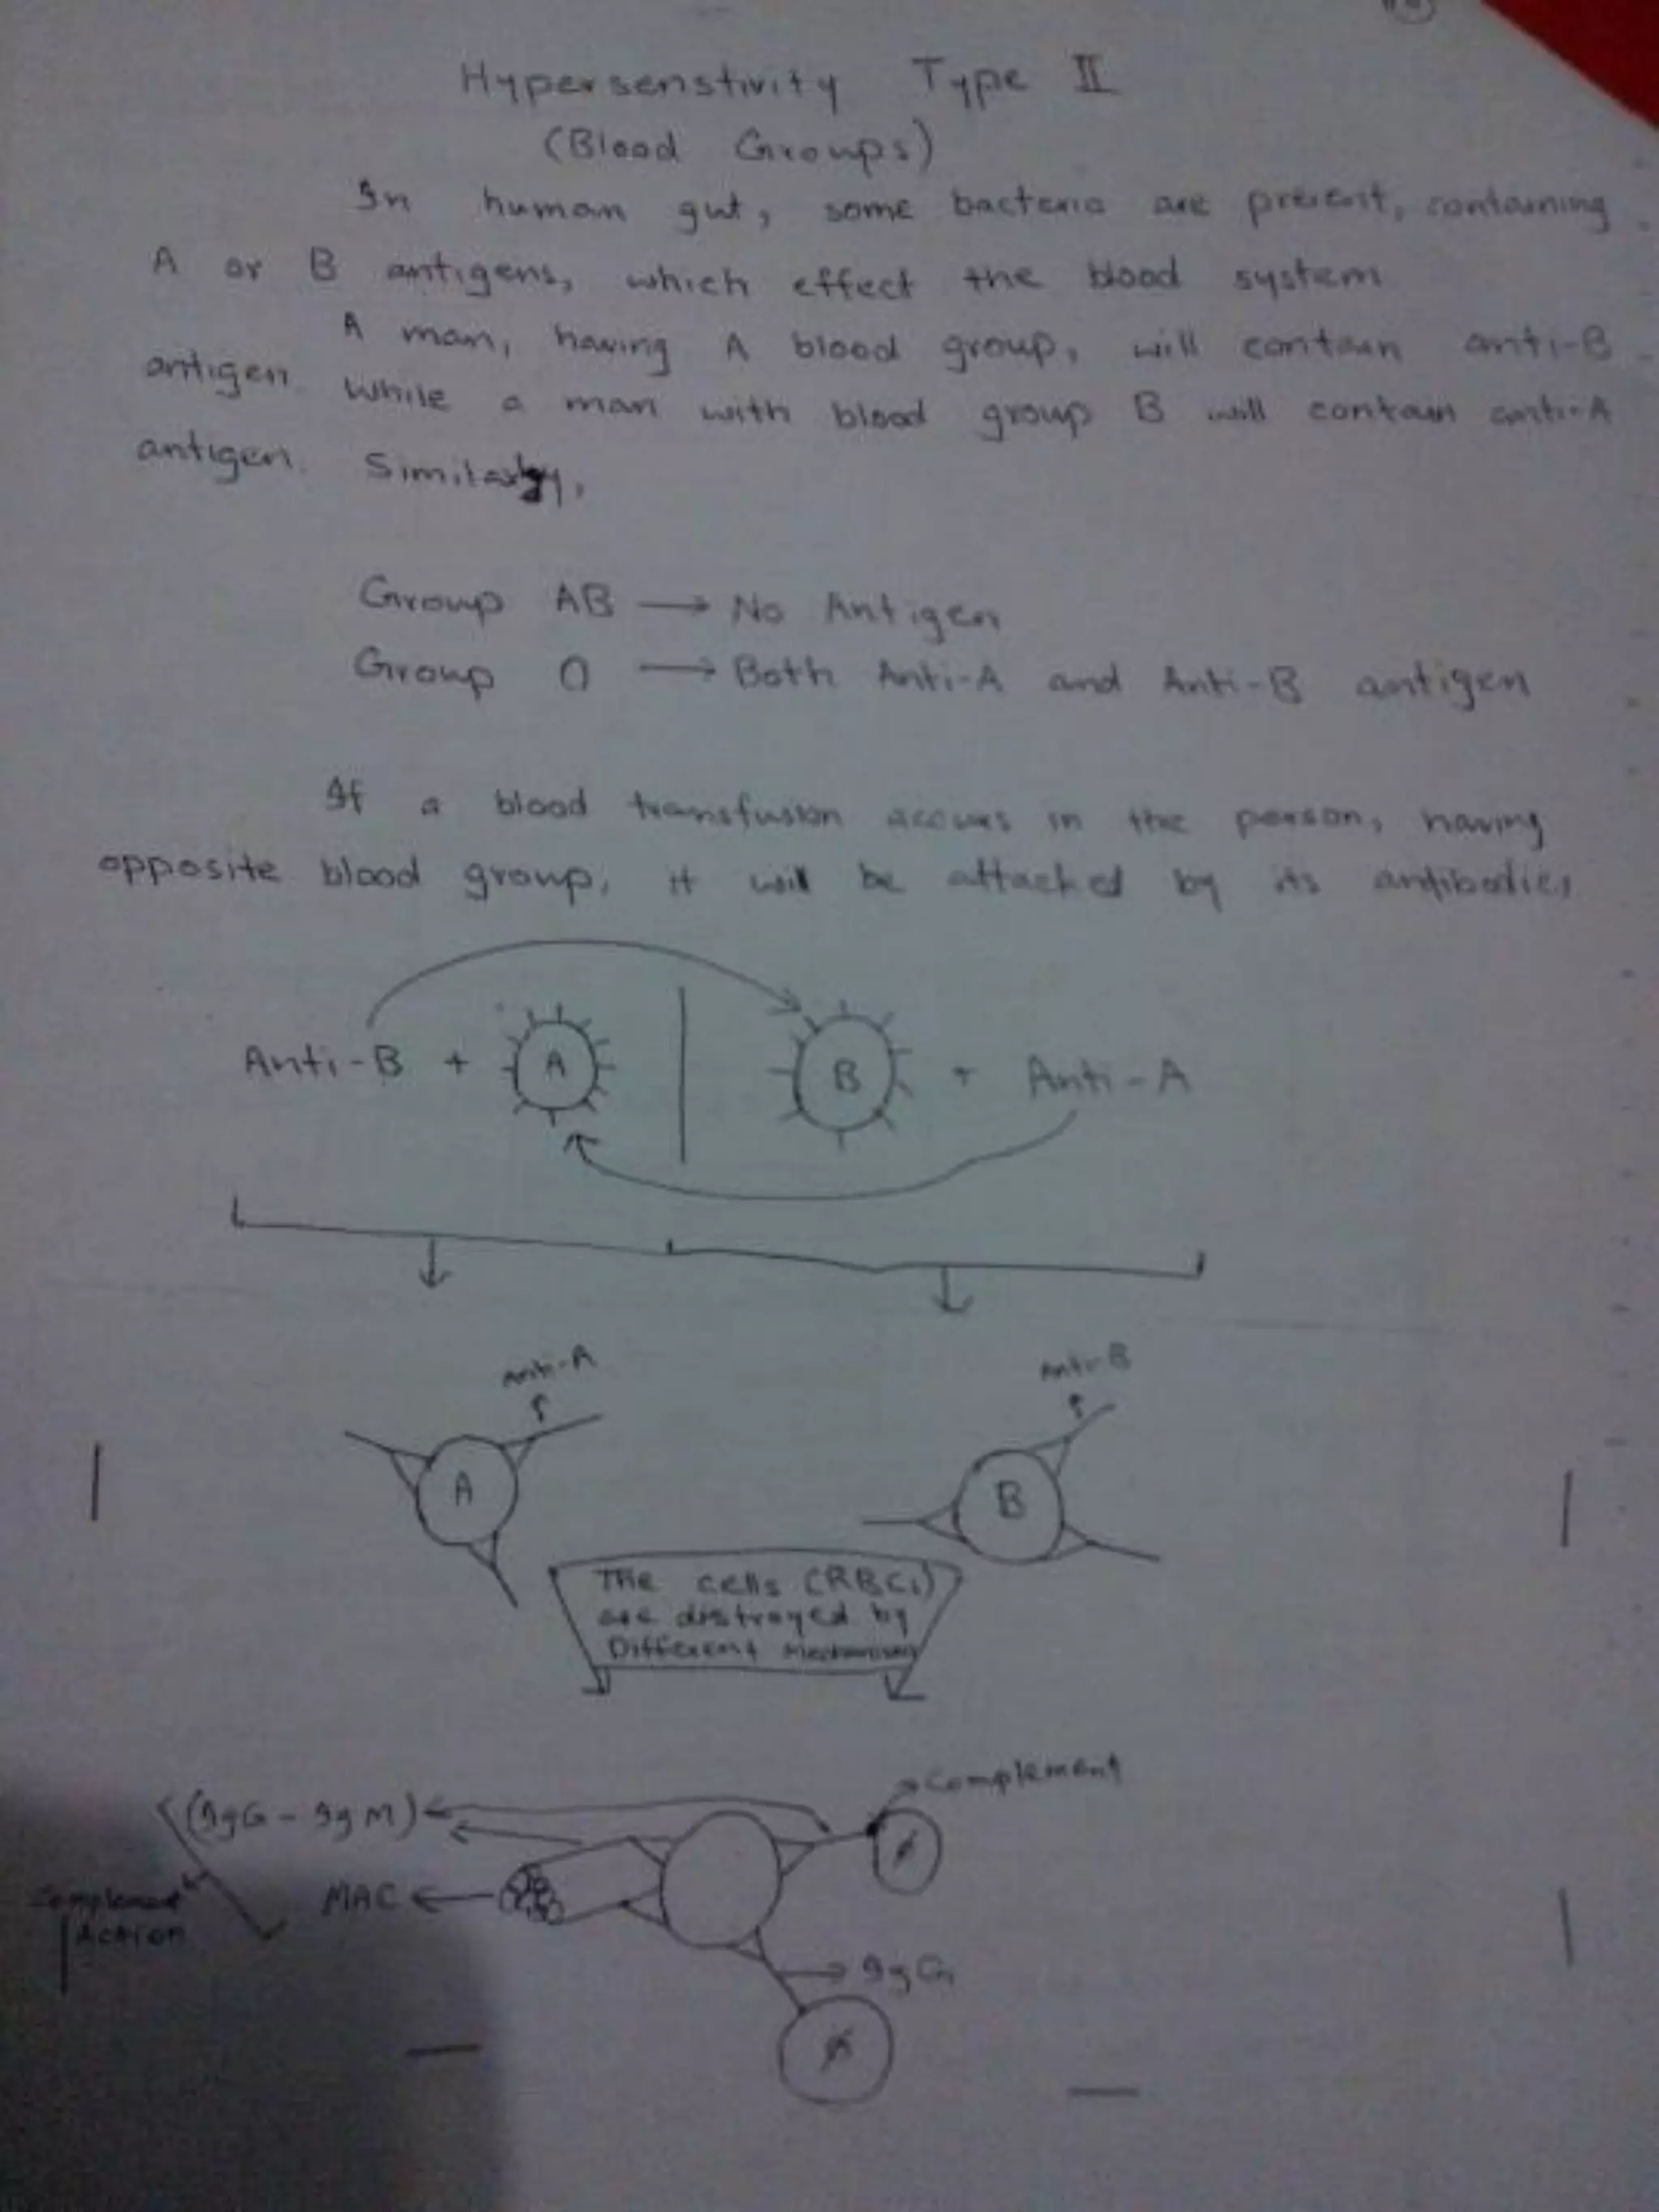 Hypersenstivity Type II
(Blood Groups)
In human gut, some bacteria are present, containing
A or B antigens, which effect the blood system
A man, having A blood group, will contain anti-B
antigen. While a man with blood group B will contain anti-A
antigen. Similarly,
Group AB → No Antigen
Group O → Both Anti-A and Anti-B antigen
If a blood transfusion accurs in the person, having
opposite blood group, it will be attacked by its antibodies
Anti-B + A | B + Anti-A
Anti-A
Anti-B
A
B
The cells (RBCs)
are distroyed by
Different Mechanisms
Complement
(IgG - IgM)
MAC
Complement
Action
IgG